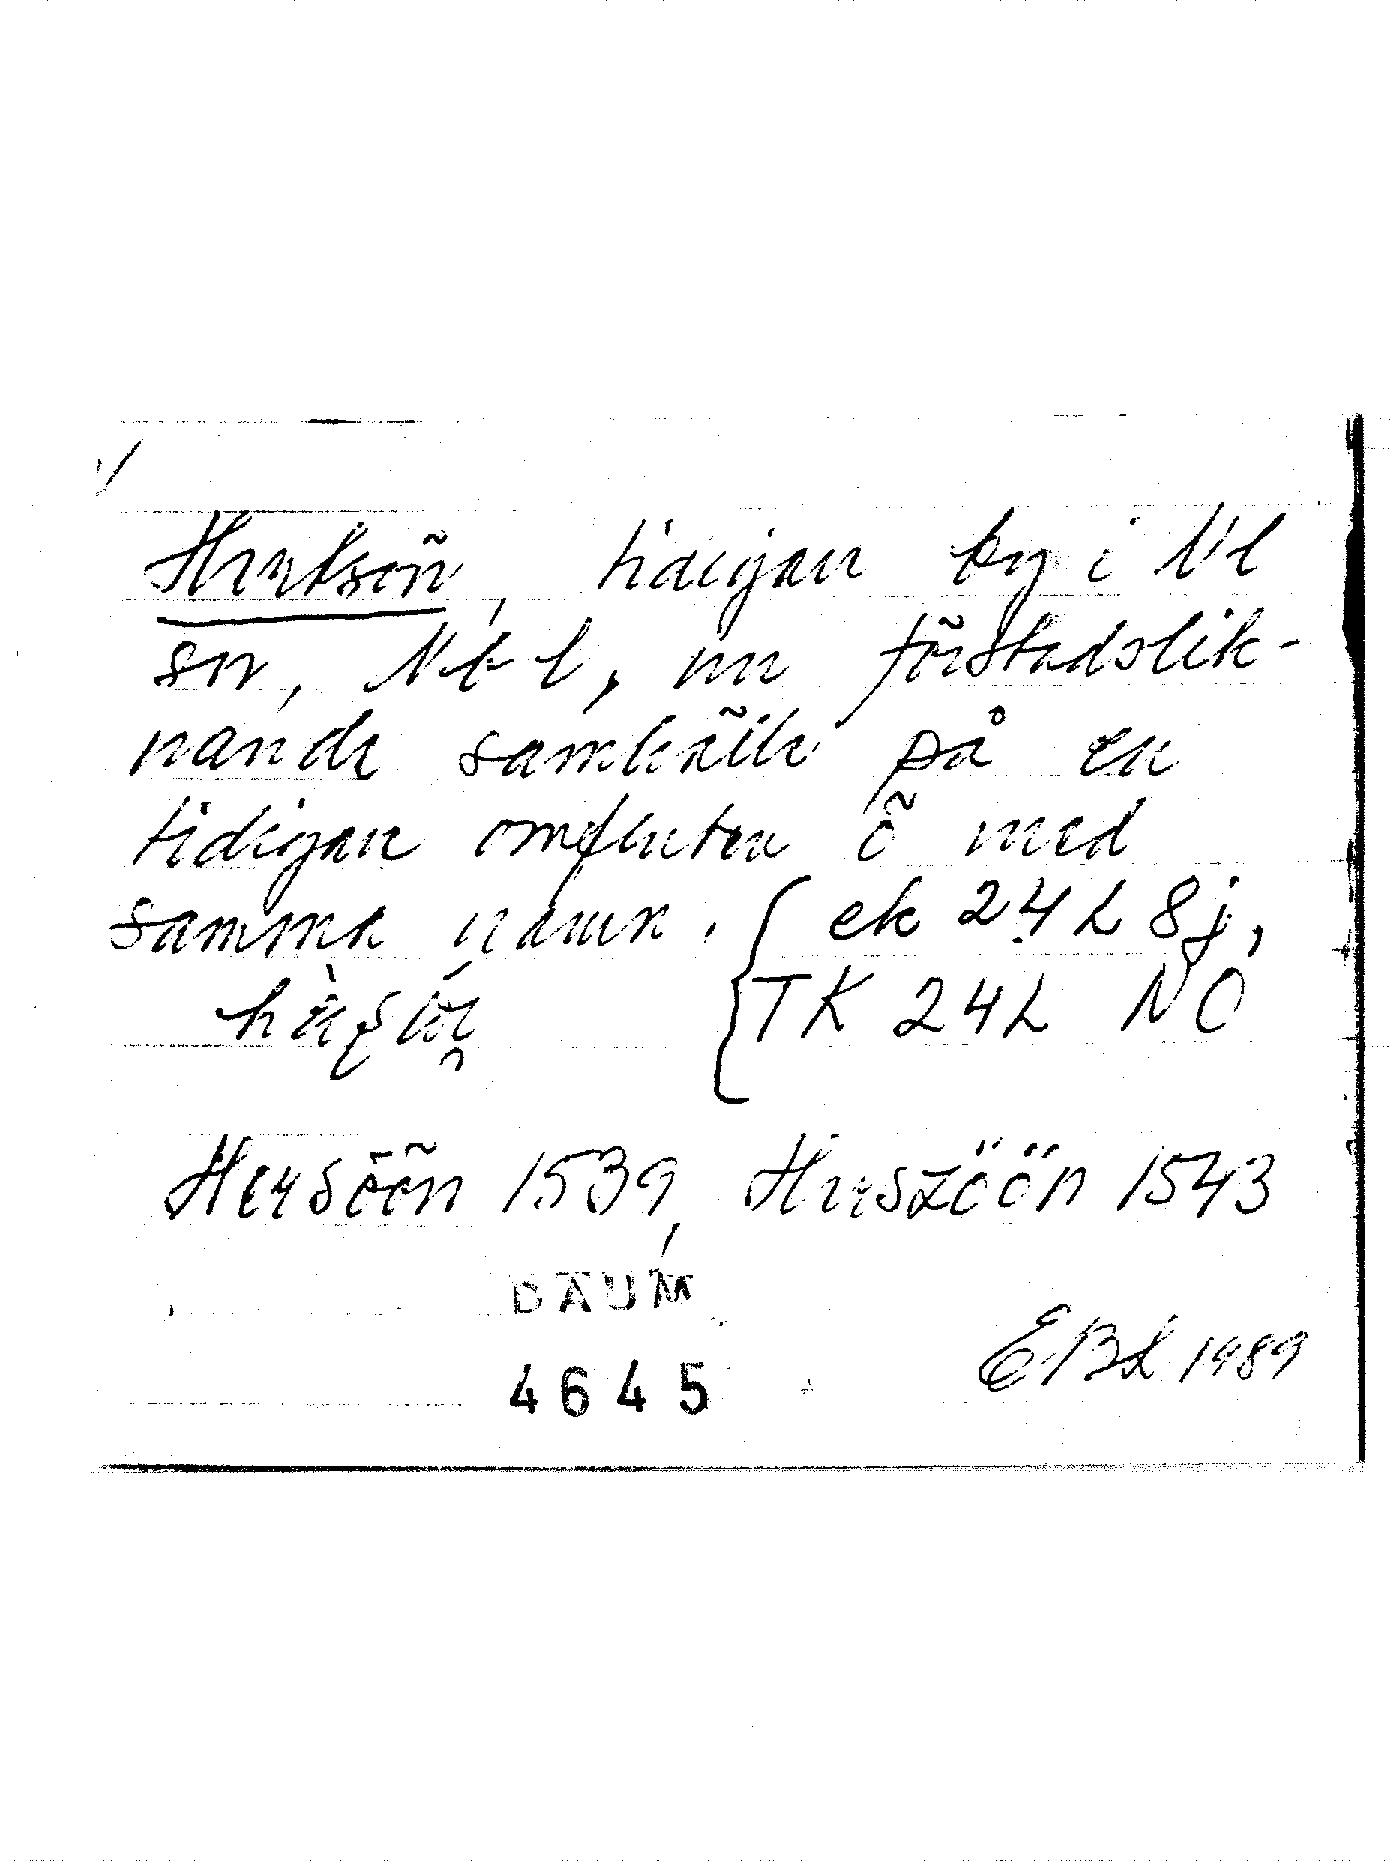 Hertsön, tidigare by i Nl
sn, Nbtl, nu förstadslik-
nande samhälle på en
tidigare omfluten ö med
samma namn. { ek 24L 8j,
TK 24L NO
Hersöön 1539, Herszöön 1543
DAUM
EBL 1989
4645